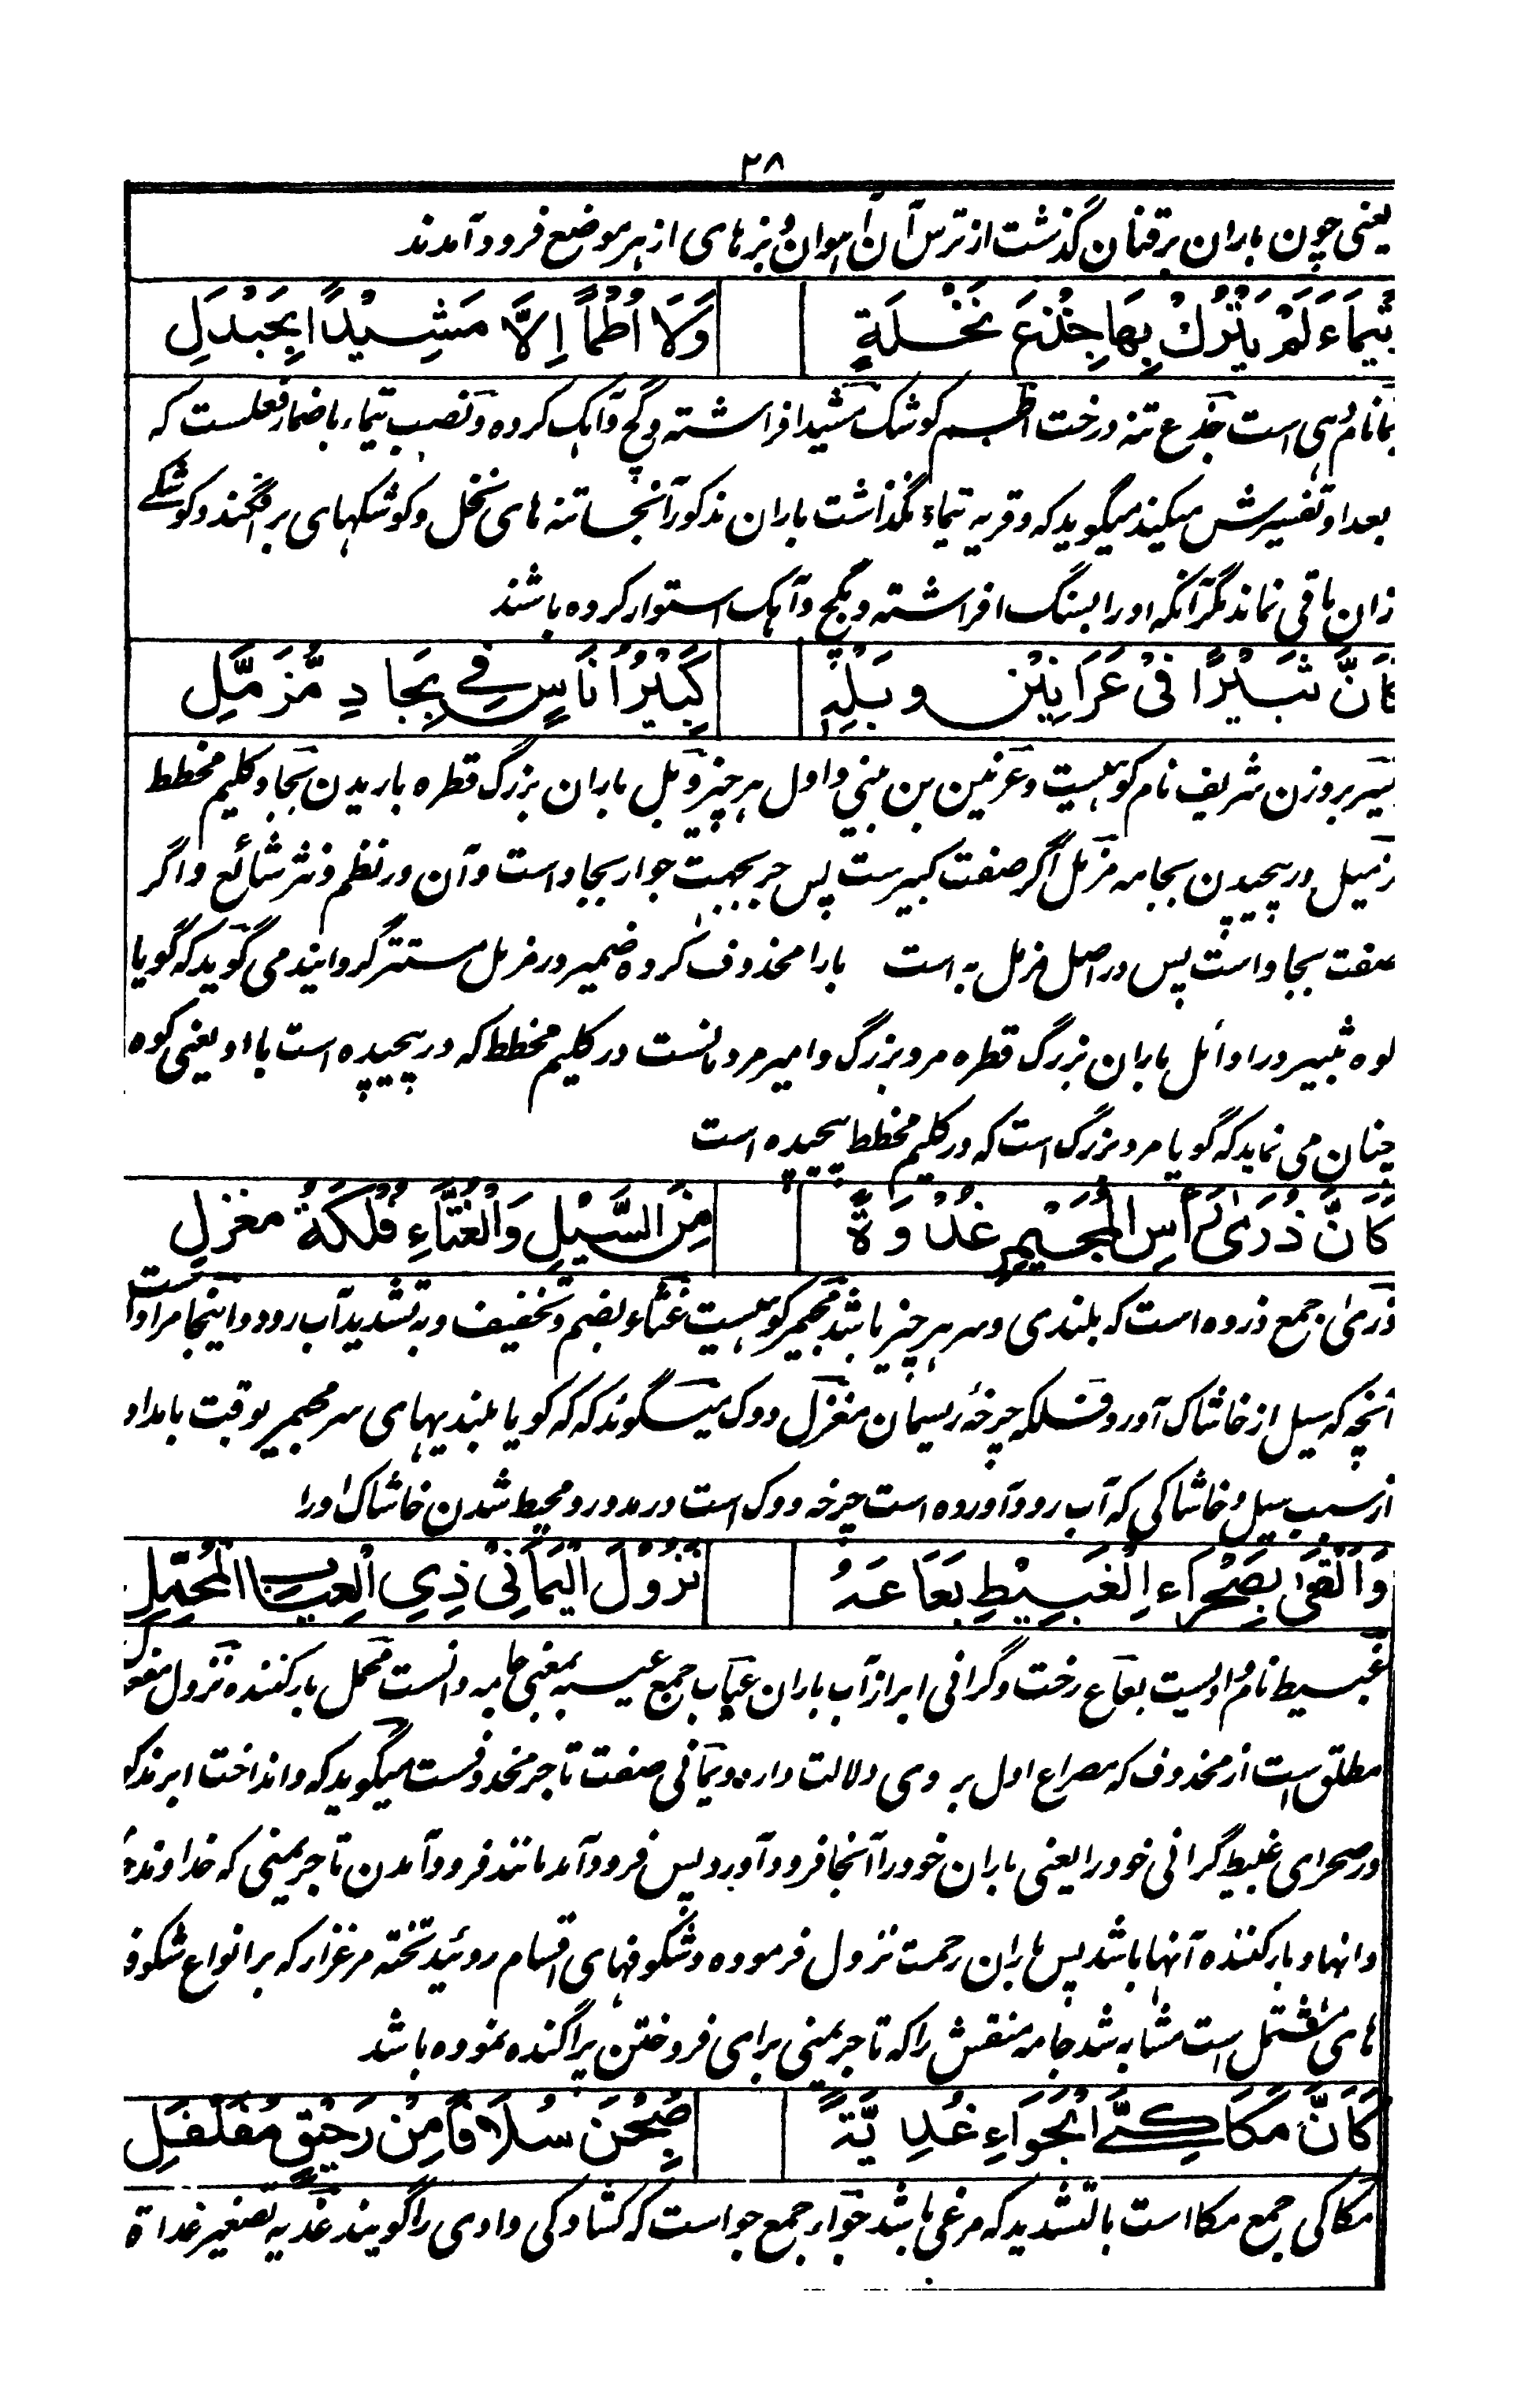 ۲۸
یعنی چون باران برقنان گذشت از ترس آن آهوان و بزهای از هر موضع فرود آمدند
تَیْمَاءَ لَمْ یَتْرُكْ بِهَا جِذْعَ نَخْلَةٍ وَلَا اُطُمًا اِلَّا مَشِیْدًا بِجَنْدَلِ
نام دهی است جذع تنه درخت اطم کوشک مشید افراشته و گچ و آهک کرده و نصب تیماء باضمار فعلست که
بعد او تفسیرش میکند میگوید که و قریه تیماء نگذاشت باران مذکور آنجا تنه های نخل و کوشکهای بر افگند و کوشکے
زان باقی نماند مگر آنکه او را بسنگ افراشته و بگچ و آهک استوار کرده باشند
كَاَنَّ ثَبِیْرًا فِیْ عَرَانِیْنِ وَبْلِهٖ كَبِیْرُ اُنَاسٍ فِی بِجَادٍ مُّزَمَّلِ
ثبیر بروزن شریف نام کوهیست و عرنین بن بینی و اول هر چیز و بل باران بزرگ قطره باریدن بجاد کلیم مخطط
تزمیل در پیچیدن بجامه مزمل اگر صفت کبیرست پس جر بجهت جوار بجاد است و آن در نظم و نثر شائع و اگر
صفت بجاد است پس در اصل مزمل به است با را محذوف کرده ضمیر در مزمل مستتر گردانیند می گوید که گویا
کوه ثبیر در اوائل باران بزرگ قطره مرد بزرگ و امیر مردمانست در کلیم مخطط که در پیچیده است با او یعنی کوه
چنان می نماید که گویا مرد بزرگ است که در کلیم مخطط پیچیده است
كَاَنَّ ذُرَىٰ رَأسِ الْمُجَیْمِرِ غُدْوَةً مِنَ السَّیْلِ وَالْغُثَّاءِ فُلْكَةُ مغزلِ
ذری جمع ذروه است که بلندی و سر هر چیز باشد مجیمر کوهیست غثاء بضم و تخفیف و به تشدید آب رود و اینجا مراد است
آنچه که سیل از خاشاک آورد و فلکه چرخهٔ ریسمان مغزل دوک میگوئد که که گویا بلندیهای سر مجیمر بوقت بامداد
از سبب سیل و خاشاکی که آب رود آورده است چرخه دوک است در مدور و محیط شدن خاشاک او را
وَاَلْقَیٰ بِصَحْرَاءِ الْغَبِیْطِ بَعَاعَهُ نُزُوْلَ الْیَمَانِیْ ذِی الْعِیَابِ الْمُحَمَّلِ
غبیط نام وادیست بعاع رخت و گرانی ابر از آب باران عیاب جمع عیبه بمعنی جامه دانست محمل بار کننده نزول مفعول
مطلق است از محذوف که مصراع اول بر وی دلالت دارد و یمانی صفت تاجر محذوفست میگوید که و انداخت ابر مذکو
در صحرای غبیط گرانی خود را یعنی باران خود را آنجا فرود آورد پس فرود آمد مانند فرود آمدن تاجر یمنی که خداوند
دانها و بار کننده آنها باشد پس باران رحمت نزول فرموده و شگوفهای اقسام روئید تخته مرغزار که بر انواع شگوفه
های مشتمل است مشابه شد جامه منقش را که تاجر یمنی برای فروختن پراگنده نموده باشد
كَاَنَّ مَكَاكِيَّ الْجَوَاءِ غُدَیَّةً صُبِحْنَ سُلَافًا مِنْ رَحِیْقٍ مُفَلْفَلِ
مکاکی جمع مکا است بالتشدید که مرغی باشد جواء جمع جو است که کشادگی وادی را گویند غدیه تصغیر غداة